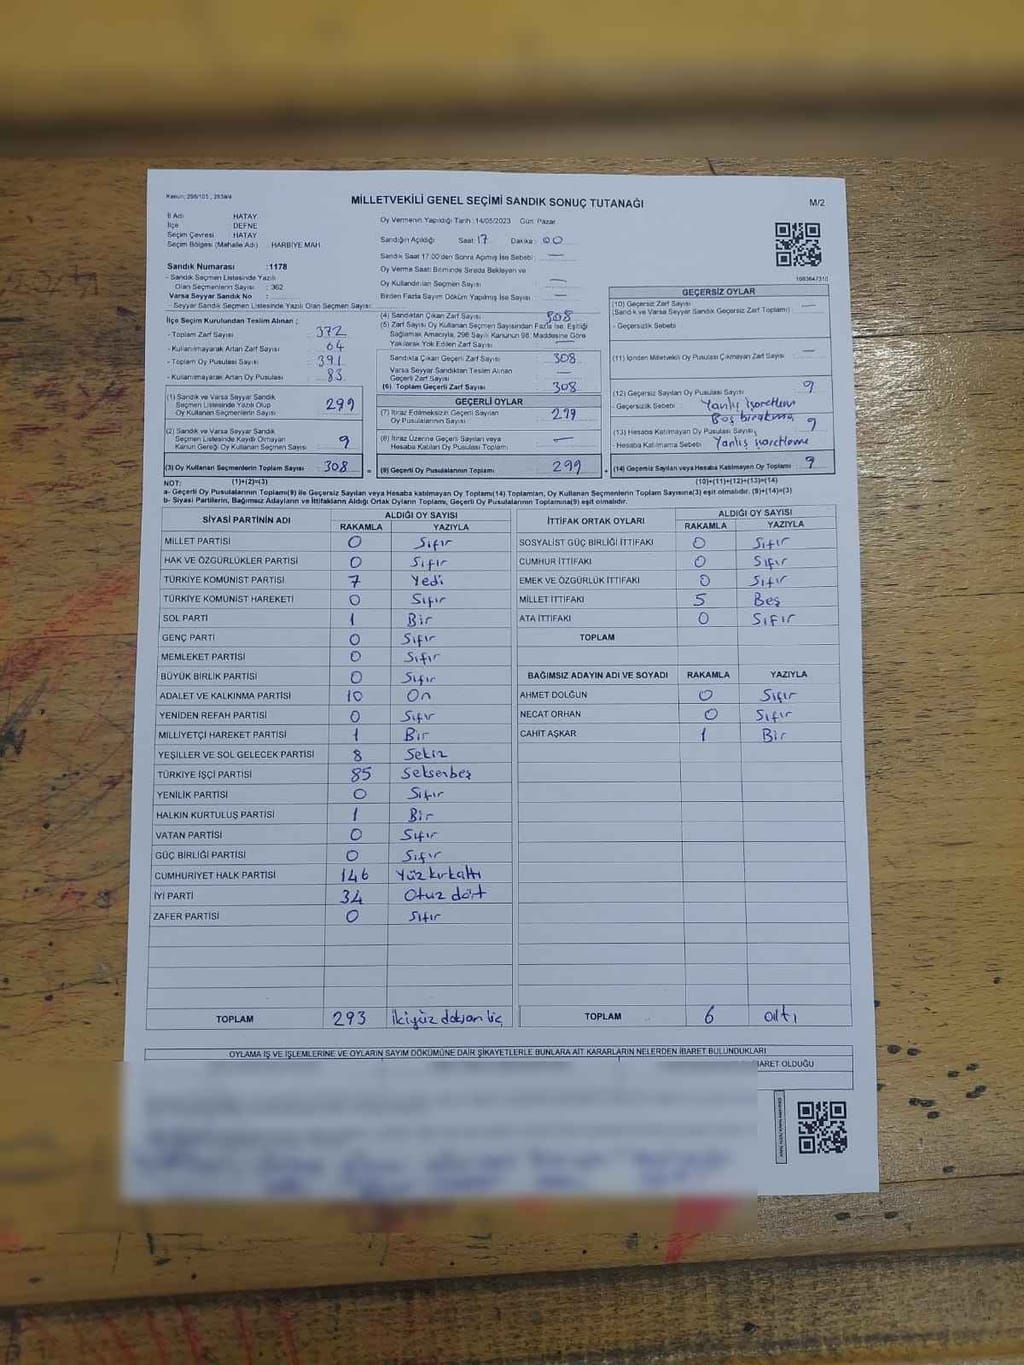 Kanun: 298/105, 2839/4
MİLLETVEKİLİ GENEL SEÇİMİ SANDIK SONUÇ TUTANAĞI
M/2
İl Adı : HATAY
İlçe : DEFNE
Seçim Çevresi : HATAY
Seçim Bölgesi (Mahalle Adı) : HARBİYE MAH
Sandık Numarası :1178
- Sandık Seçmen Listesinde Yazılı
Olan Seçmenlerin Sayısı : 362
Varsa Seyyar Sandık No :
- Seyyar Sandık Seçmen Listesinde Yazılı Olan Seçmen Sayısı:
Oy Vermenin Yapıldığı Tarih : 14/05/2023 Gün: Pazar
Sandığın Açıldığı Saat: 17 Dakika: 00
Sandık Saat 17.00'den Sonra Açılmış İse Sebebi: —
Oy Verme Saati Bitiminde Sırada Bekleyen ve
Oy Kullandırılan Seçmen Sayısı : —
Birden Fazla Sayım Döküm Yapılmış İse Sayısı : —
İlçe Seçim Kurulundan Teslim Alınan ;
- Toplam Zarf Sayısı : 372
- Kullanılmayarak Artan Zarf Sayısı : 64
- Toplam Oy Pusulası Sayısı : 391
- Kullanılmayarak Artan Oy Pusulası : 83
(1) Sandık ve Varsa Seyyar Sandık
Seçmen Listesinde Yazılı Olup
Oy Kullanan Seçmenlerin Sayısı : 299
(2) Sandık ve Varsa Seyyar Sandık
Seçmen Listesinde Kaydı Olmayan
Kanun Gereği Oy Kullanan Seçmen Sayısı : 9
(3) Oy Kullanan Seçmenlerin Toplam Sayısı : 308
(4) Sandıktan Çıkan Zarf Sayısı : 308
(5) Zarf Sayısı Oy Kullanan Seçmen Sayısından Fazla İse, Eşitliği
Sağlamak Amacıyla, 298 Sayılı Kanunun 98. Maddesine Göre
Yakılarak Yok Edilen Zarf Sayısı : —
Sandıkta Çıkan Geçerli Zarf Sayısı : 308
Varsa Seyyar Sandıktan Teslim Alınan
Geçerli Zarf Sayısı : —
(6) Toplam Geçerli Zarf Sayısı : 308
GEÇERLİ OYLAR
(7) İtiraz Edilmeksizin Geçerli Sayılan
Oy Pusulası Sayısı : 299
(8) İtiraz Üzerine Geçerli Sayılan veya
Hesaba Katılan Oy Pusulası Toplamı : —
= (9) Geçerli Oy Pusulalarının Toplamı : 299
1083647310
GEÇERSİZ OYLAR
(10) Geçersiz Zarf Sayısı : —
(Sandık ve Varsa Seyyar Sandık Geçersiz Zarf Toplamı)
- Geçersizlik Sebebi :
(11) İçinden Milletvekili Oy Pusulası Çıkmayan Zarf Sayısı : —
(12) Geçersiz Sayılan Oy Pusulası Sayısı : 9
- Geçersizlik Sebebi : Yanlış işaretleme
Boş bırakma
(13) Hesaba Katılmayan Oy Pusulası Sayısı : 9
Hesaba Katılmama Sebebi : Yanlış işaretleme
+ (14) Geçersiz Sayılan veya Hesaba Katılmayan Oy Toplamı : 9
NOT: (1)+(2)=(3) (10)+(11)+(12)+(13)=(14)
a- Geçerli Oy Pusulalarının Toplamı(9) ile Geçersiz Sayılan veya Hesaba katılmayan Oy Toplamı(14) Toplamları, Oy Kullanan Seçmenlerin Toplam Sayısına(3) eşit olmalıdır. (9)+(14)=(3)
b- Siyasi Partilerin, Bağımsız Adayların ve İttifakların Aldığı Ortak Oyların Toplamı, Geçerli Oy Pusulaları Toplamına(9) eşit olmalıdır.
SİYASİ PARTİNİN ADI ALDIĞI OY SAYISI
RAKAMLA YAZIYLA
MİLLET PARTİSİ 0 Sıfır
HAK VE ÖZGÜRLÜKLER PARTİSİ 0 Sıfır
TÜRKİYE KOMÜNİST PARTİSİ 7 Yedi
TÜRKİYE KOMÜNİST HAREKETİ 0 Sıfır
SOL PARTİ 1 Bir
GENÇ PARTİ 0 Sıfır
MEMLEKET PARTİSİ 0 Sıfır
BÜYÜK BİRLİK PARTİSİ 0 Sıfır
ADALET VE KALKINMA PARTİSİ 10 On
YENİDEN REFAH PARTİSİ 0 Sıfır
MİLLİYETÇİ HAREKET PARTİSİ 1 Bir
YEŞİLLER VE SOL GELECEK PARTİSİ 8 Sekiz
TÜRKİYE İŞÇİ PARTİSİ 85 Seksenbeş
YENİLİK PARTİSİ 0 Sıfır
HALKIN KURTULUŞ PARTİSİ 1 Bir
VATAN PARTİSİ 0 Sıfır
GÜÇ BİRLİĞİ PARTİSİ 0 Sıfır
CUMHURİYET HALK PARTİSİ 146 Yüzkırkaltı
İYİ PARTİ 34 Otuz dört
ZAFER PARTİSİ 0 Sıfır
TOPLAM 293 İkiyüz doksan üç
İTTİFAK ORTAK OYLARI ALDIĞI OY SAYISI
RAKAMLA YAZIYLA
SOSYALİST GÜÇ BİRLİĞİ İTTİFAKI 0 Sıfır
CUMHUR İTTİFAKI 0 Sıfır
EMEK VE ÖZGÜRLÜK İTTİFAKI 0 Sıfır
MİLLET İTTİFAKI 5 Beş
ATA İTTİFAKI 0 Sıfır
TOPLAM
BAĞIMSIZ ADAYIN ADI VE SOYADI RAKAMLA YAZIYLA
AHMET DOLĞUN 0 Sıfır
NECAT ORHAN 0 Sıfır
CAHİT AŞKAR 1 Bir
TOPLAM 6 altı
OYLAMA İŞ VE İŞLEMLERİNE VE OYLARIN SAYIM DÖKÜMÜNE DAİR ŞİKAYETLERLE BUNLARA AİT KARARLARIN NELERDEN İBARET BULUNDUKLARI
İBARET OLDUĞU